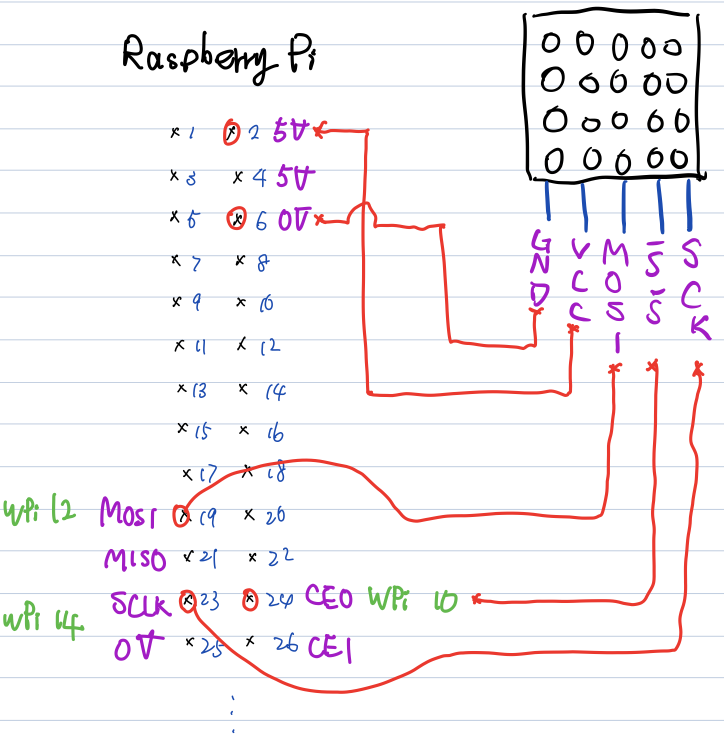 Raspberry Pi
x 1 x 2 5V
x 3 x 4 5V
x 5 x 6 0V
x 7 x 8
x 9 x 10
x 11 x 12
x 13 x 14
x 15 x 16
x 17 x 18
WPi 12 MOSI x 19 x 20
MISO x 21 x 22
WPi 14 SCLK x 23 x 24 CE0 WPi 10
0V x 25 x 26 CE1
GND
VCC
MOSI
SS
SCK